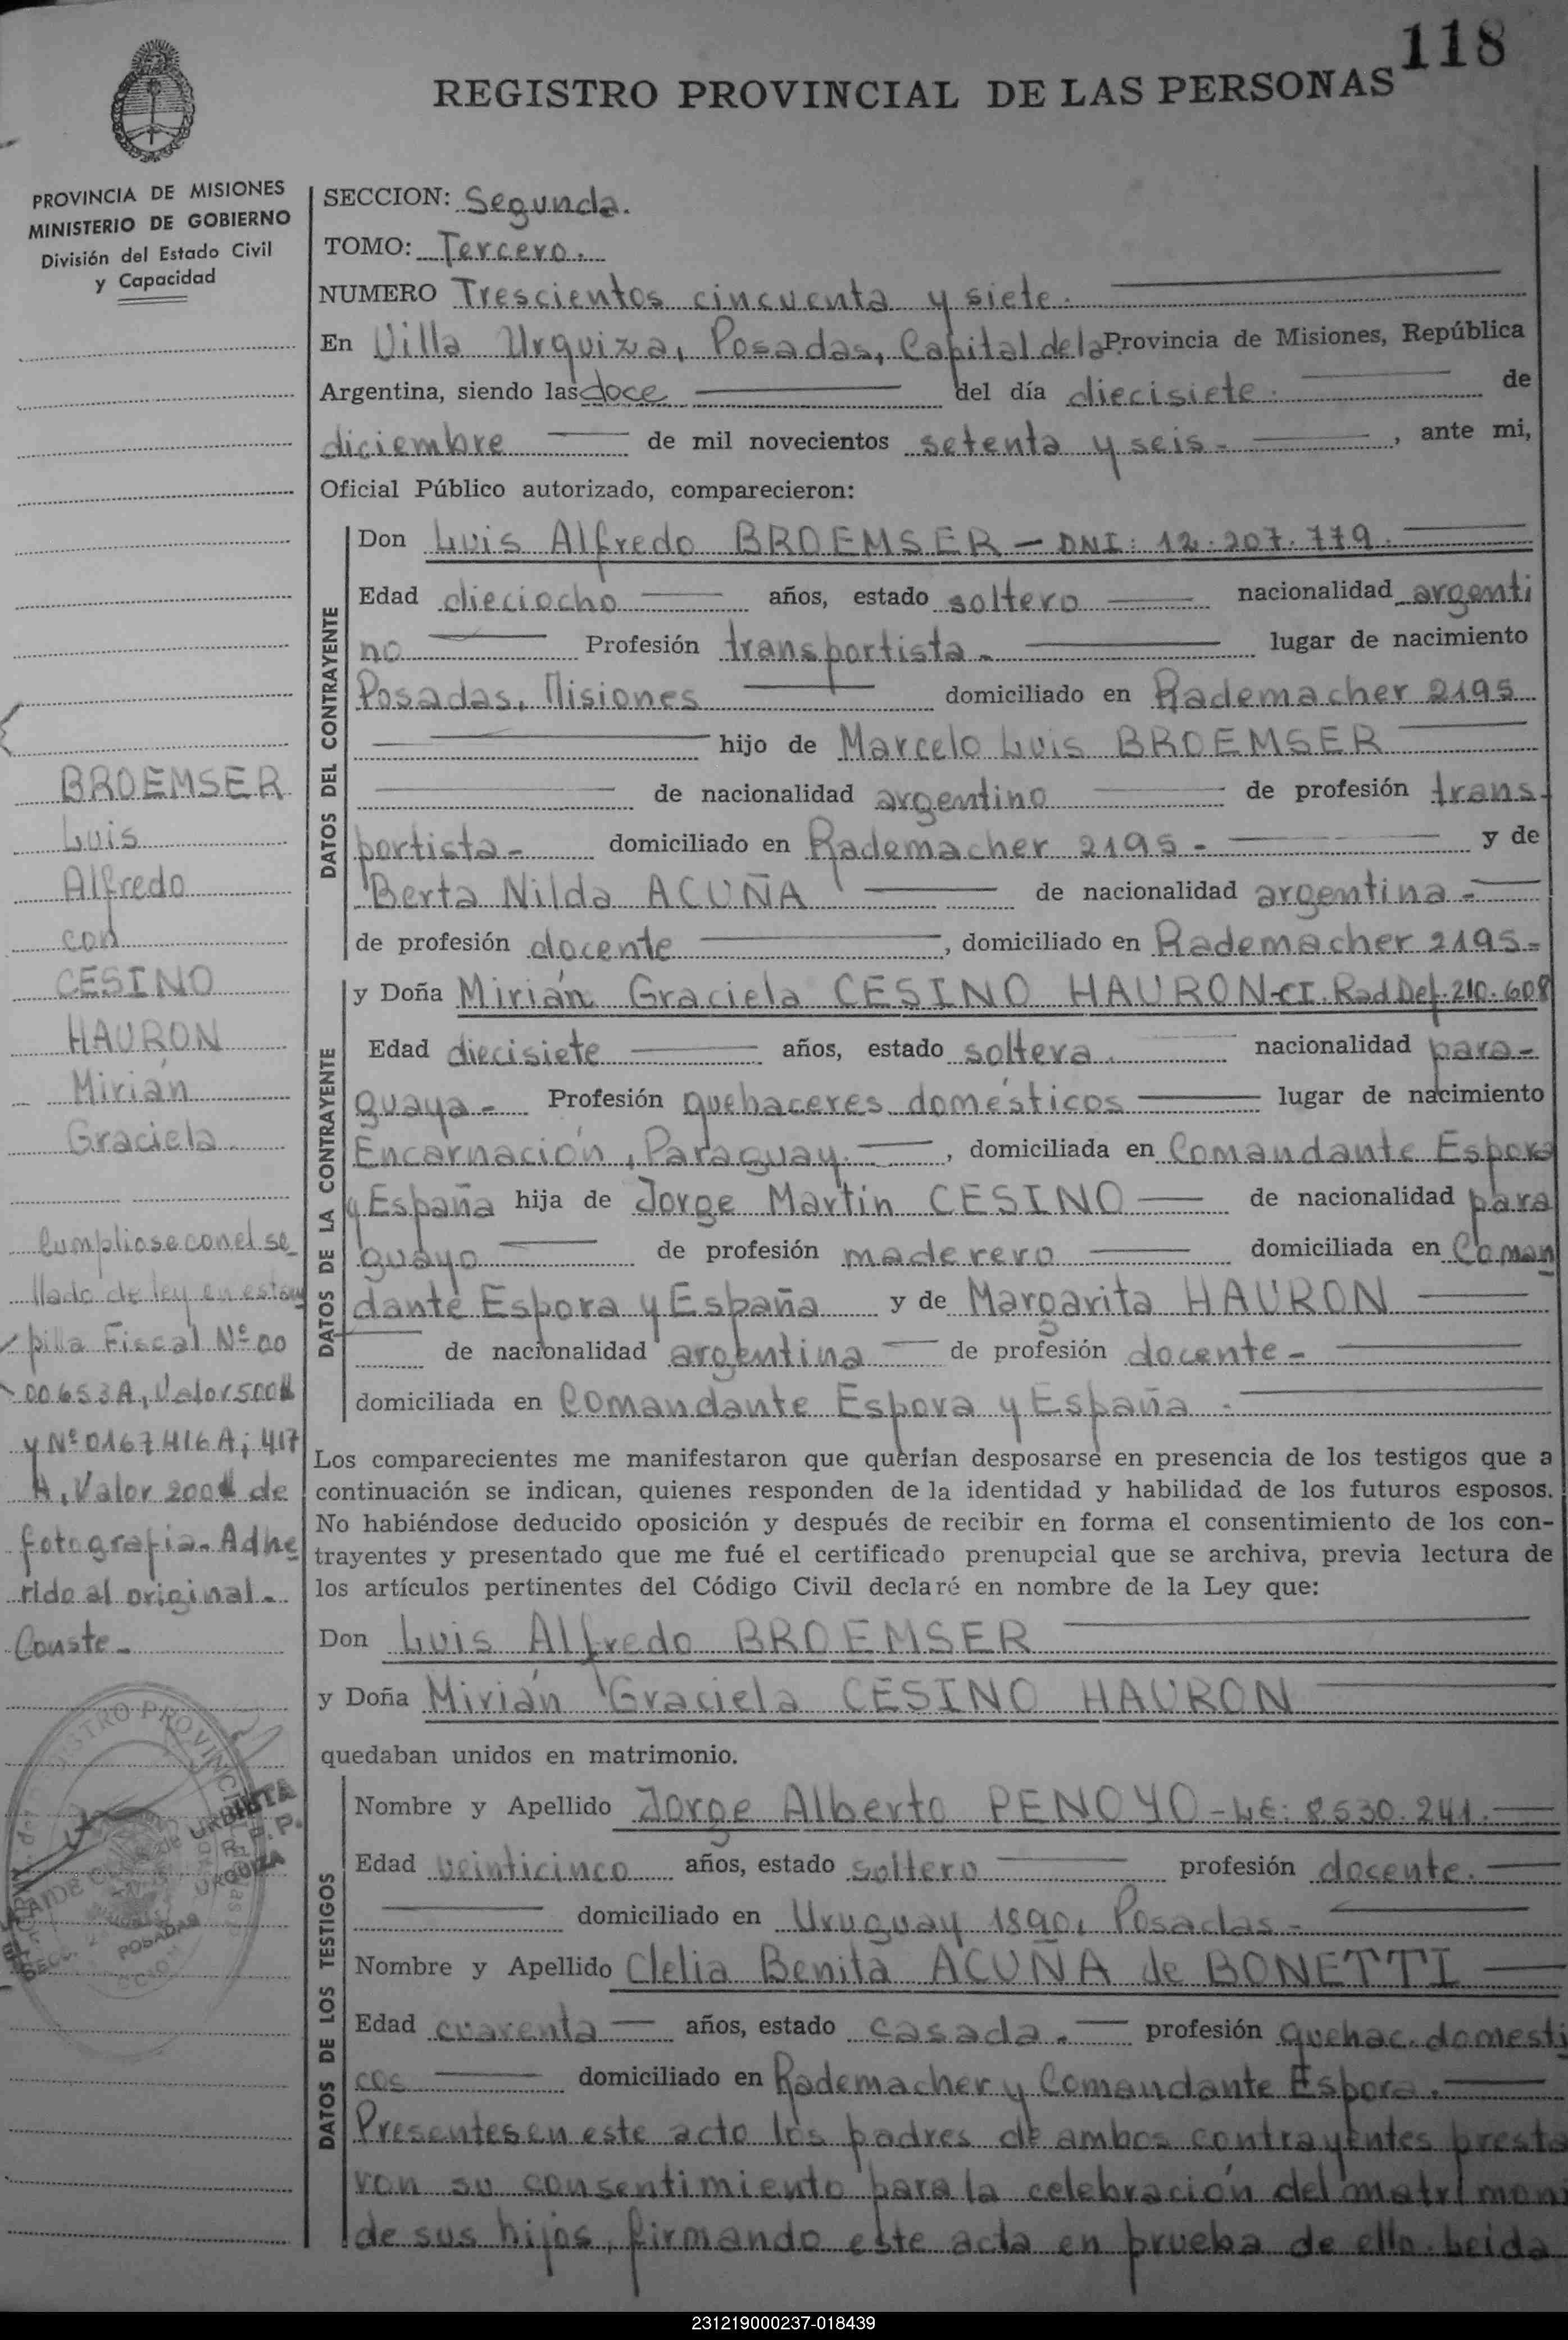 118
REGISTRO PROVINCIAL DE LAS PERSONAS
PROVINCIA DE MISIONES
MINISTERIO DE GOBIERNO
División del Estado Civil
y Capacidad
SECCION: Segunda.
TOMO: Tercero.
NUMERO Trescientos cincuenta y siete.
En Villa Urquiza, Posadas, Capital de la Provincia de Misiones, República
Argentina, siendo las doce del día diecisiete. de
diciembre de mil novecientos setenta y seis - , ante mi,
Oficial Público autorizado, comparecieron:
DATOS DEL CONTRAYENTE
Don Luis Alfredo BROEMSER - DNI: 12.207.779.
Edad dieciocho años, estado soltero nacionalidad argenti
no Profesión transportista - lugar de nacimiento
Posadas, Misiones domiciliado en Rademacher 2195
hijo de Marcelo Luis BROEMSER
de nacionalidad argentino de profesión trans-
portista - domiciliado en Rademacher 2195 - y de
Berta Nilda ACUÑA de nacionalidad argentina -
de profesión docente , domiciliado en Rademacher 2195 -
DATOS DE LA CONTRAYENTE
y Doña Mirián Graciela CESINO HAURON - CI. Rad Def. 210.608
Edad diecisiete años, estado soltera. nacionalidad para-
guaya - Profesión quehaceres domésticos lugar de nacimiento
Encarnación, Paraguay. , domiciliada en Comandante Espora
y España hija de Jorge Martin CESINO de nacionalidad para
guayo de profesión maderero domiciliada en Coman
dante Espora y España y de Margarita HAURON
de nacionalidad argentina de profesión docente -
domiciliada en Comandante Espora y España -
Los comparecientes me manifestaron que querían desposarse en presencia de los testigos que a
continuación se indican, quienes responden de la identidad y habilidad de los futuros esposos.
No habiéndose deducido oposición y después de recibir en forma el consentimiento de los con-
trayentes y presentado que me fué el certificado prenupcial que se archiva, previa lectura de
los artículos pertinentes del Código Civil declaré en nombre de la Ley que:
Don Luis Alfredo BROEMSER
y Doña Mirián Graciela CESINO HAURON
quedaban unidos en matrimonio.
DATOS DE LOS TESTIGOS
Nombre y Apellido Jorge Alberto PENOYO - LE: 8.530.241.
Edad veinticinco años, estado soltero profesión docente.
domiciliado en Uruguay 1890, Posadas -
Nombre y Apellido Clelia Benita ACUÑA de BONETTI
Edad cuarenta años, estado casada. profesión quehac. domesti
cos domiciliado en Rademacher y Comandante Espora.
Presentes en este acto los padres de ambos contrayentes presta
ron su consentimiento para la celebración del matrimon
de sus hijos, firmando este acta en prueba de ello. Leida
BROEMSER
Luis
Alfredo
con
CESINO
HAURON
Mirian
Graciela
Cumpliose con el se
llado de ley en estam
pilla Fiscal Nº 00
00653A, Valor 500$
y Nº 0167416A; 417
A, Valor 200$ de
fotografia. Adhe
rido al original -
Conste -
REGISTRO PROVINCIAL
URBIETA
URQUIZA
POSADAS
231219000237-018439